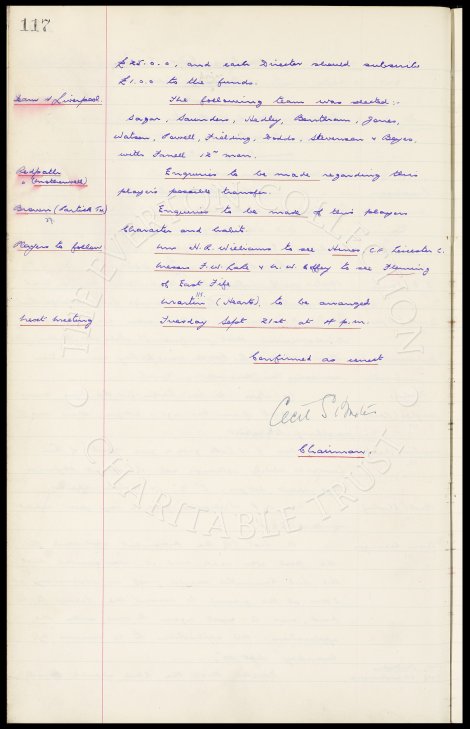 117
£25.0.0, and each Director should subscribe
£1.0.0 to the funds.
Team v Liverpool. The following team was selected:-
Sagar, Saunders, Hedley, Bentham, Jones,
Watson, Farrell, Fielding, Dodds, Stevenson & Boyes,
with Farrell 12th man.
Redpath Enquiries to be made regarding this
(Motherwell) player's possible transfer.
Brown (Partick Th) Enquiries to be made of this players
character and habits.
Players to follow Mr H.R. Williams to see (C.F. Leicester C.
Messrs F.W. Lake & W. to see Fleming
of East Fife
Martin (Hearts), to be arranged
Next Meeting Tuesday Sept 21st at 4 p.m.
Confirmed as correct
Cecil S.
Chairman.
THE EVERTON COLLECTION
CHARITABLE TRUST